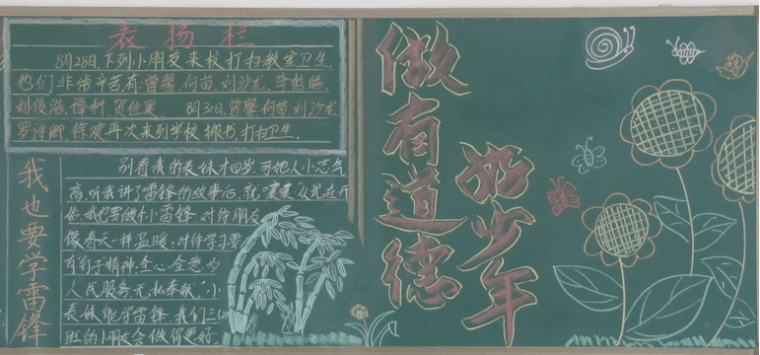 表扬栏
8月28日,下列小朋友来校打扫教室卫生,
他们非常辛苦有:曾馨、何苗、刘沙龙、李哲
刘俊 8月30日,曾馨、何苗、刘沙龙、
罗诗卿、徐 再次来到学校搬书、打扫卫生。
我也要学雷锋
别看我的表妹才四岁,可她人小志气
高,听我讲了雷锋的故事后,就 从现在开
始,我也要做个小雷锋,对待朋友
像春天一样温暖;对待学习要
有钉子精神;全心全意为
人民服务无私奉献。"小
表妹能学雷锋,我们三
班的小朋友会做得更好。
做有道德
好少年